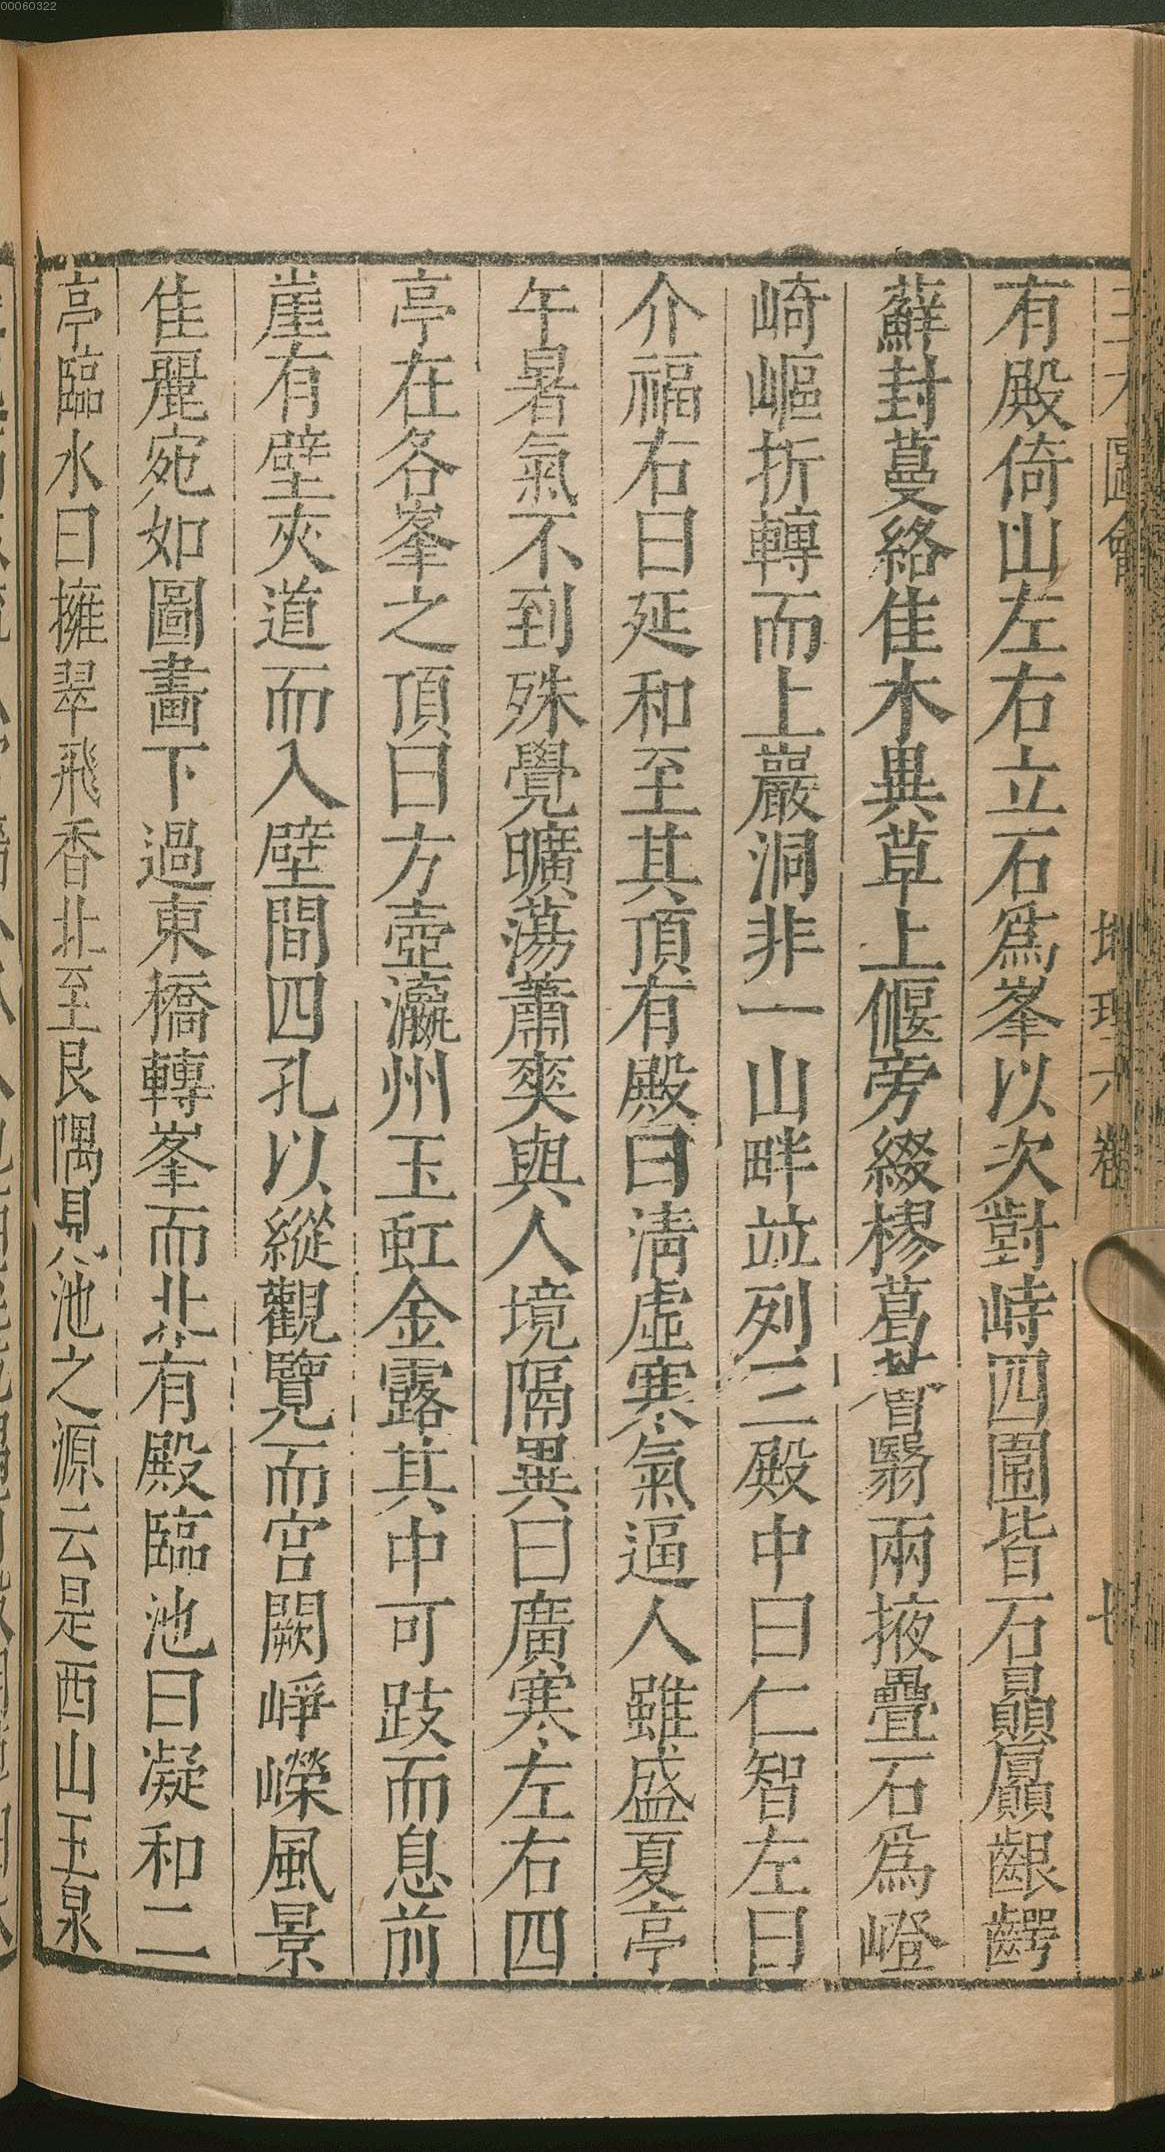 00060322
有殿倚山左右立石爲峯以次對峙四圍皆石贔屭齦齶
蘚封蔓絡佳木異草上偃旁綴樛葛薈翳兩掖疊石爲嶝
崎嶇折轉而上巖洞非一山畔竝列三殿中曰仁智左曰
介福右曰延和至其頂有殿曰淸虛寒氣逼人雖盛夏亭
午暑氣不到殊覺曠蕩蕭爽與人境隔異曰廣寒左右四
亭在各峯之頂曰方壺瀛州玉虹金露其中可跂而息前
崖有壁夾道而入壁間四孔以縱觀覽而宮闕崢嶸風景
佳麗宛如圖畫下過東橋轉峯而北有殿臨池曰凝和二
亭臨水曰擁翠飛香北至艮隅見池之源云是西山玉泉